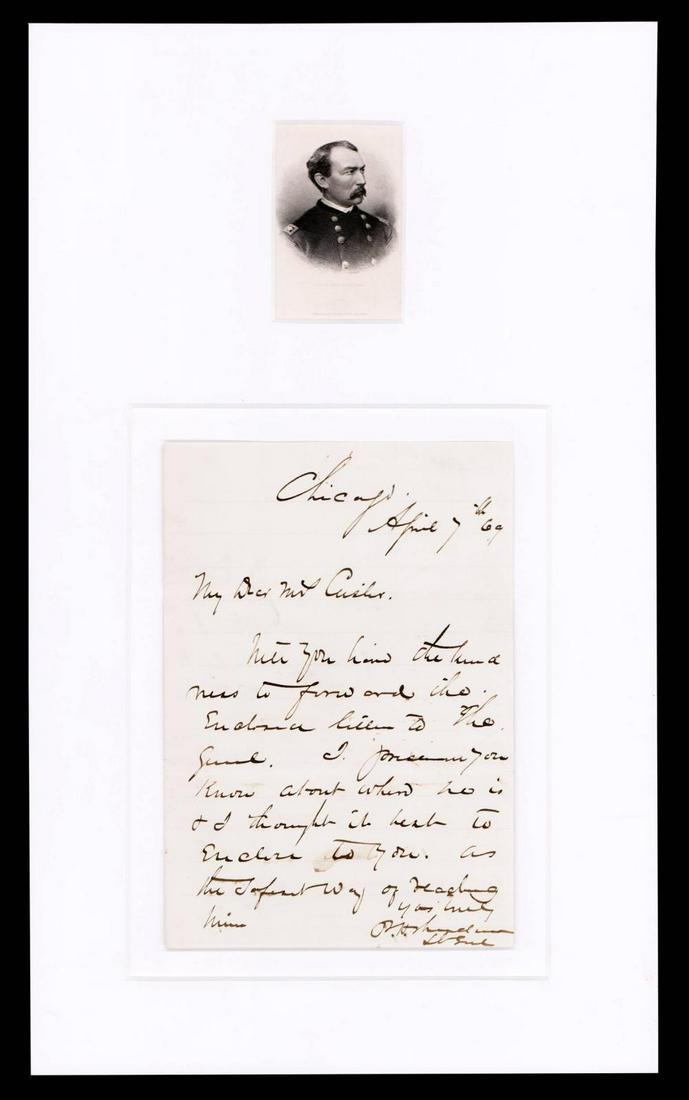 Chicago.
April 7th 69
My Dear Mrs Custer.
Will you have the kind
ness to forward the
Enclosed letter to the
Genl. I presume you
Know about where he is
& I thought it best to
Enclose to you. as
the Safest Way of reaching
him
Yours truly
P. H. Sheridan
Lt Genl